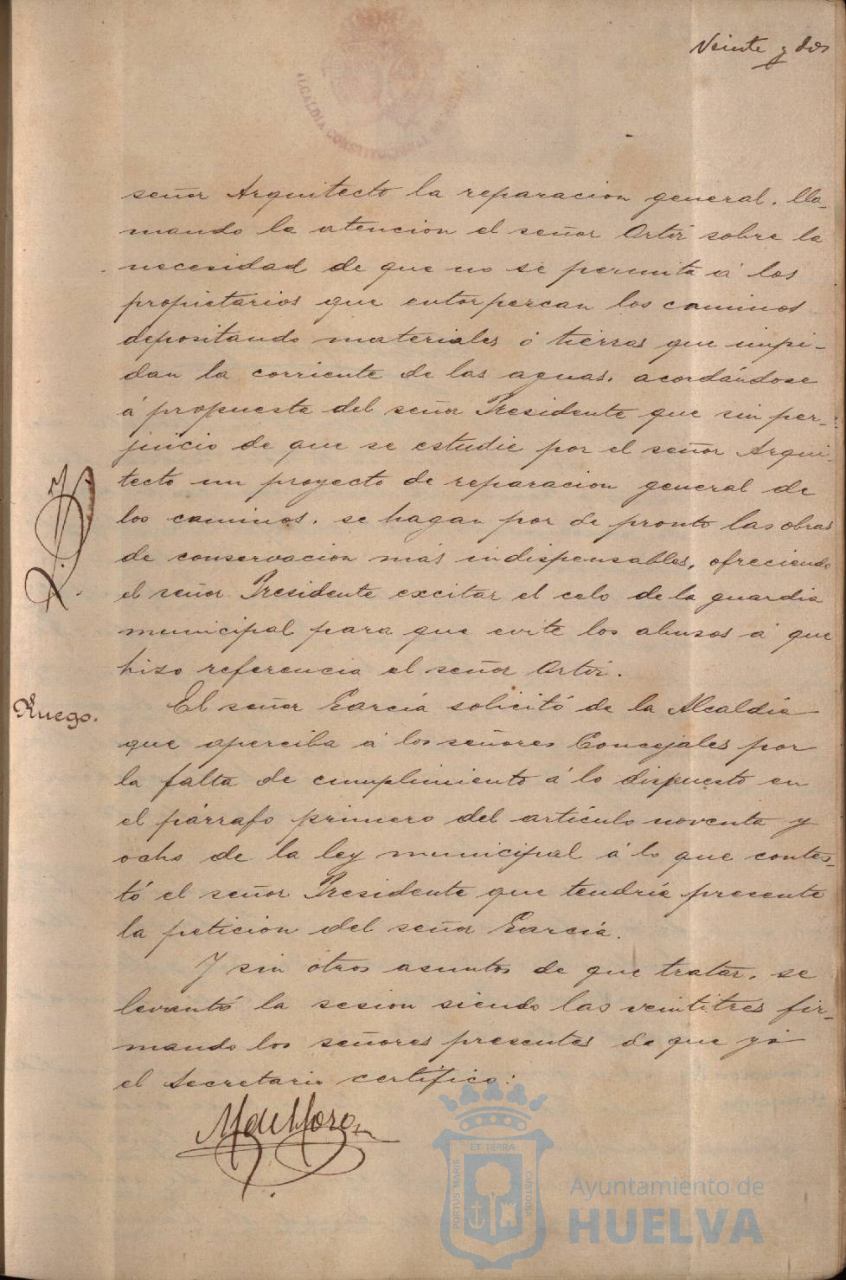 Veinte y dos
ALCALDIA CONSTITUCIONAL
señor Arquitecto la reparacion general, lla-
mando la atencion el señor Ortiz sobre la
necesidad de que no se permita á los
propietarios que entorpezcan los caminos
depositando materiales ó tierras que impi-
dan la corriente de las aguas, acordándose
á propuesta del señor Presidente que sin per-
juicio de que se estudie por el señor Arqui-
tecto un proyecto de reparacion general de
los caminos, se hagan por de pronto las obras
de conservacion más indispensables, ofreciendo
el señor Presidente excitar el celo de la guardia
municipal para que evite los abusos á que
hizo referencia el señor Ortiz.
Ruego.
El señor García solicitó de la Alcaldía
que aperciba á los señores Concejales por
la falta de cumplimiento á lo dispuesto en
el párrafo primero del artículo noventa y
ocho de la ley municipal á lo que contes-
tó el señor Presidente que tendría presente
la peticion del señor García.
Y sin otros asuntos de que tratar, se
levantó la sesion siendo las veintitres fir-
mando los señores presentes de que yó
el Secretario certifico:
ET TERRA
PORTUS MARIS
CUSTODIA
Ayuntamiento de
HUELVA